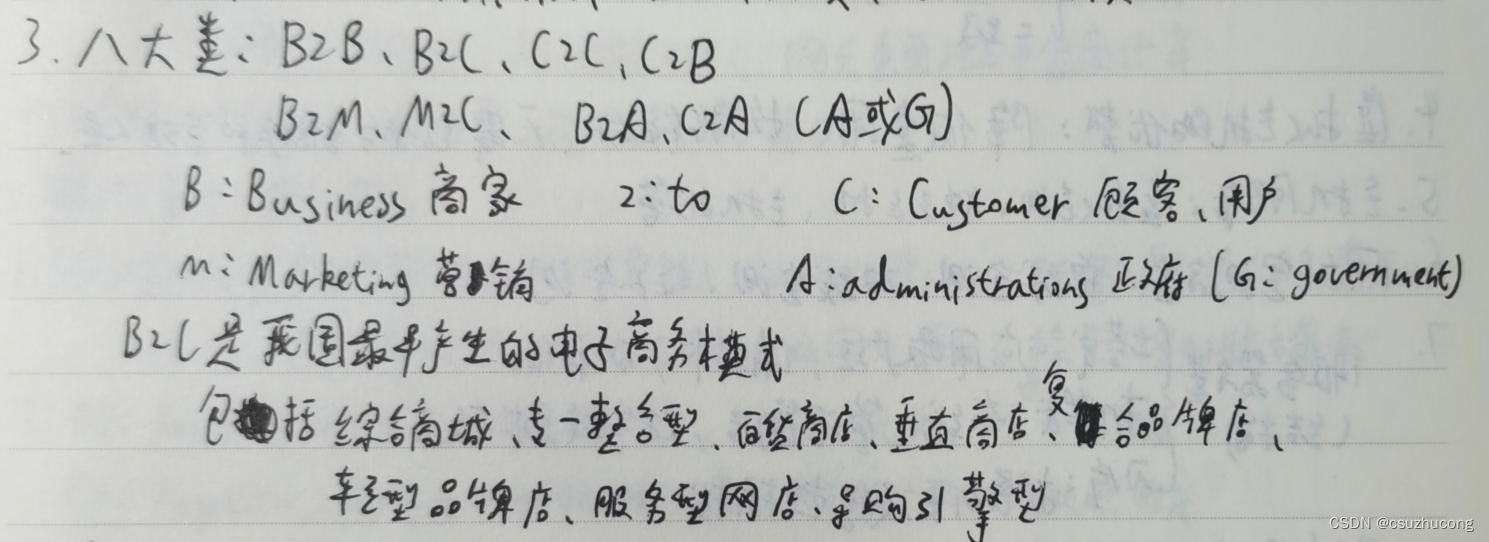 3. 八大类: B2B、B2C、C2C、C2B
B2M、M2C、 B2A、C2A (A或G)
B:Business 商家 2:to C:Customer 顾客、用户
M:Marketing 营销 A:administrations 政府 (G:government)
B2C是我国最早产生的电子商务模式
包括 综合商城、专一整合型、百货商店、垂直商店、复合品牌店、
轻型品牌店、服务型网店、导购引擎型
CSDN @csuzhucong